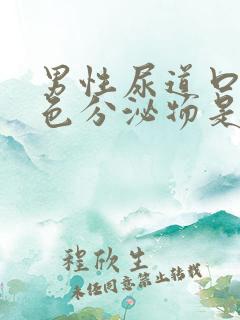 男性尿道口
色分泌物是
程欣生
未经同意禁止转载